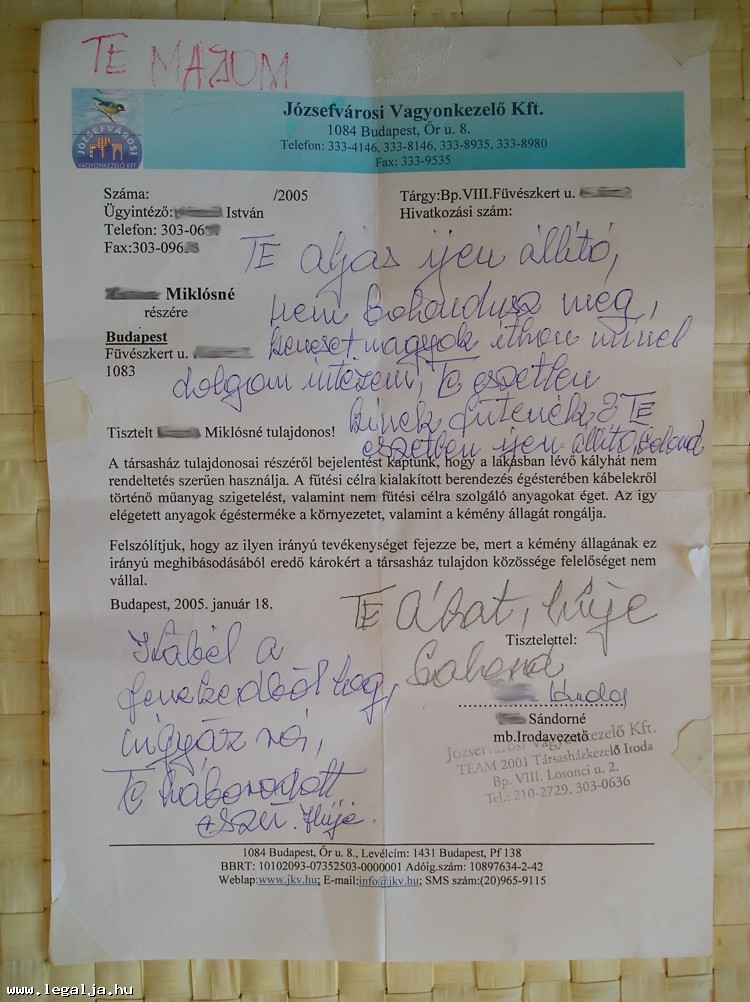 TE MAJOM
JÓZSEFVÁROSI
VAGYONKEZELŐ KFT.
Józsefvárosi Vagyonkezelő Kft.
1084 Budapest, Őr u. 8.
Telefon: 333-4146, 333-8146, 333-8935, 333-8980
Fax: 333-9535
Száma: /2005
Ügyintéző: István
Telefon: 303-06
Fax:303-096
Tárgy:Bp.VIII.Füvészkert u.
Hivatkozási szám:
TE aljas ijen állító,
Miklósné
részére
nem bolondusz meg,
Budapest
Füvészkert u.
1083
ithon
dolgom intézem, Te eszetlen
kinek fűtenék? TE
Tisztelt Miklósné tulajdonos!
eszetlen ijen állító, bolond
A társasház tulajdonosai részéről bejelentést kaptunk, hogy a lakásban lévő kályhát nem
rendeltetés szerűen használja. A fűtési célra kialakított berendezés égésterében kábelekről
történő műanyag szigetelést, valamint nem fűtési célra szolgáló anyagokat éget. Az így
elégetett anyagok égésterméke a környezetet, valamint a kémény állagát rongálja.
Felszólítjuk, hogy az ilyen irányú tevékenységet fejezze be, mert a kémény állagának ez
irányú meghibásodásából eredő károkért a társasház tulajdon közössége felelőséget nem
vállal.
Budapest, 2005. január 18.
TE Állat, hűje
Tisztelettel:
bolond
Kábél a
fenekedből log,
vigyáz rá,
Te háborodott
eszű. Hűje.
Sándorné
mb.Irodavezető
Józsefvárosi Vagyonkezelő Kft.
TEAM 2001 Társasházkezelő Iroda
Bp. VIII. Losonci u. 2.
Tel.: 210-2729, 303-0636
1084 Budapest, Őr u. 8., Levélcím: 1431 Budapest, Pf 138
BBRT: 10102093-07352503-0000001 Adóig.szám: 10897634-2-42
Weblap:www.jkv.hu; E-mail:info@jkv.hu; SMS szám:(20)965-9115
www.legalja.hu